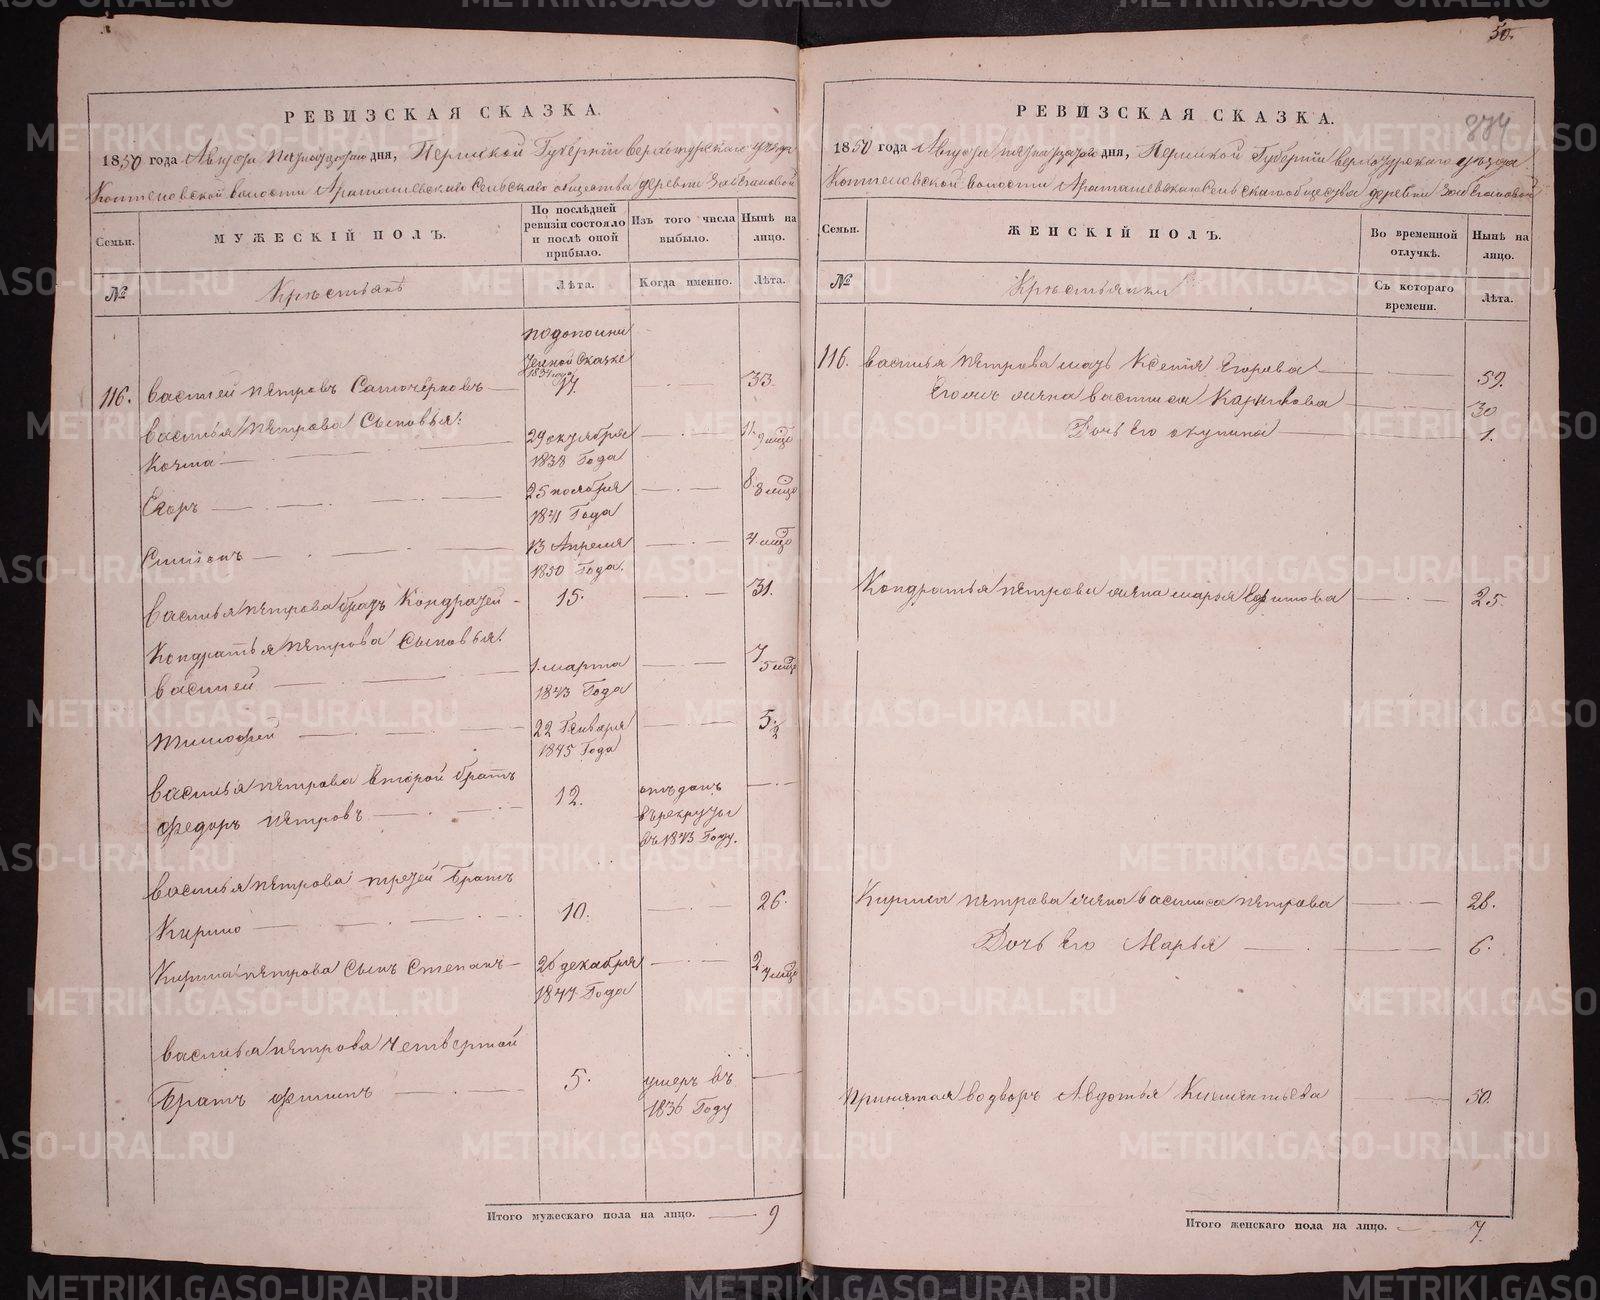 РЕВИЗСКАЯ СКАЗКА.
1850 года Августа пятнадцатаго дня, Пермской Губернiи верхотурскаго уѣзда
Коптеловской волости Арамашевскаго Сельскаго общества деревни
МУЖЕСКIЙ ПОЛЪ.
Семьи.
По послѣдней ревизiи состояло и послѣ оной прибыло.
Изъ того числа выбыло.
Нынѣ на лицо.
№
Крестьянъ
Лѣта.
Когда именно.
Лѣта.
116. василей петровъ Самочерновъ 17. 33.
подополни
тельной Сказке
1834 года
василья петрова Сыновья:
Козма 29 октября 1838 Года 11. 9 мцо
Егоръ 25 ноября 1841 Года 8. 8 мцо
Симионъ 13 Апреля 1850 Года. 4 мцо
василья петрова братъ Кондратей 15. 31.
Кондратья петрова Сыновья:
василей 1. марта 1843 Года 7 5 мцо
тимофей 22 Генваря 1845 Года 5.
василья петрова второй братъ
федоръ петровъ 12. отъданъ
върекруты
въ 1843 Году.
василья петрова третей братъ
Кирило 10. 26.
Кирила петрова Сынъ Степанъ 26 декабря 1847 Года 2 7 мцо
василья петрова четвертой
братъ филипъ 5. умеръ въ
1836 Году
Итого мужескаго пола на лицо. 9
50.
884
РЕВИЗСКАЯ СКАЗКА.
1850 года Августа пятнадцатаго дня, Пермской Губернiи верхотурскаго уѣзда
Коптеловской волости Арамашевскаго Сельскаго общества деревни
Семьи.
ЖЕНСКIЙ ПОЛЪ.
Во временной отлучкѣ.
Нынѣ на лицо.
№
Крестьянки
Съ котораго времени.
Лѣта.
116. василья петрова мать Ксения Егорова 59.
Его жена василиса Карпова 30
Дочь Его акулина 1.
Кондратья петрова жена марья Ефимова 25.
Кирила петрова жена василиса петрова 28.
Дочь Его Марья 6.
принятая водворъ Авдотья Климентьева 50.
Итого женскаго пола на лицо. 7.
METRIKI.GASO-URAL.RU